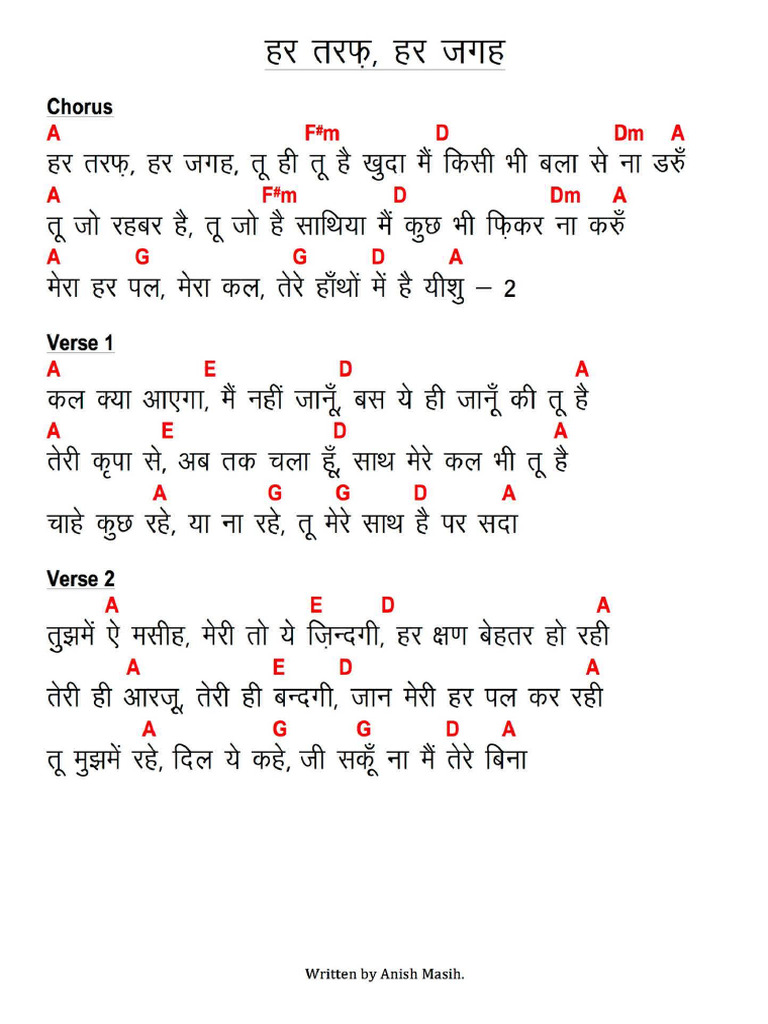 हर तरफ़, हर जगह
Chorus
A F#m D Dm A
हर तरफ़, हर जगह, तू ही तू है खुदा मैं किसी भी बला से ना डरुँ
A F#m D Dm A
तू जो रहबर है, तू जो है साथिया मैं कुछ भी फ़िकर ना करुँ
A G G D A
मेरा हर पल, मेरा कल, तेरे हाँथों में है यीशु – 2
Verse 1
A E D A
कल क्या आएगा, मैं नहीं जानूँ, बस ये ही जानूँ की तू है
A E D A
तेरी कृपा से, अब तक चला हूँ, साथ मेरे कल भी तू है
A G G D A
चाहे कुछ रहे, या ना रहे, तू मेरे साथ है पर सदा
Verse 2
A E D A
तुझमें ऐ मसीह, मेरी तो ये ज़िन्दगी, हर क्षण बेहतर हो रही
A E D A
तेरी ही आरजू, तेरी ही बन्दगी, जान मेरी हर पल कर रही
A G G D A
तू मुझमें रहे, दिल ये कहे, जी सकूँ ना मैं तेरे बिना
Written by Anish Masih.